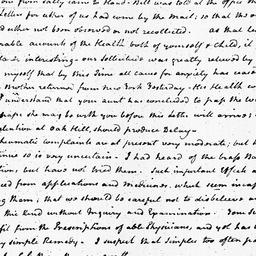 from Sally came to Hand. Bill was told at the Office tha
Letters for either of us had come by the Mail; so that this
had either not been observed or not recollected. As that le
nable accounts of the Health both of yourself & Child, it
interesting. our solicitude was greatly relieved by
myself that by this Time all cause for anxiety has ceas
Mother returned from New York Yesterday. His Health co
understand that your aunt has concluded to pass the w
perhaps she may be with you before this letter will arrive;
at Oak Hill, should produce Delay.
rheumatic complaints are at present very moderate; but
times so is very uncertain. I had heard of the brass
but have not tried them. Such important Effects
ced from applications and Medicines, which seem incap
ng them; that we should be careful not to disbelieve
this Kind without Inquiry and Examination. Your
fit from the Prescriptions of able Physicians, and yet has
very simple Remedy. I suspect that simples too often pa